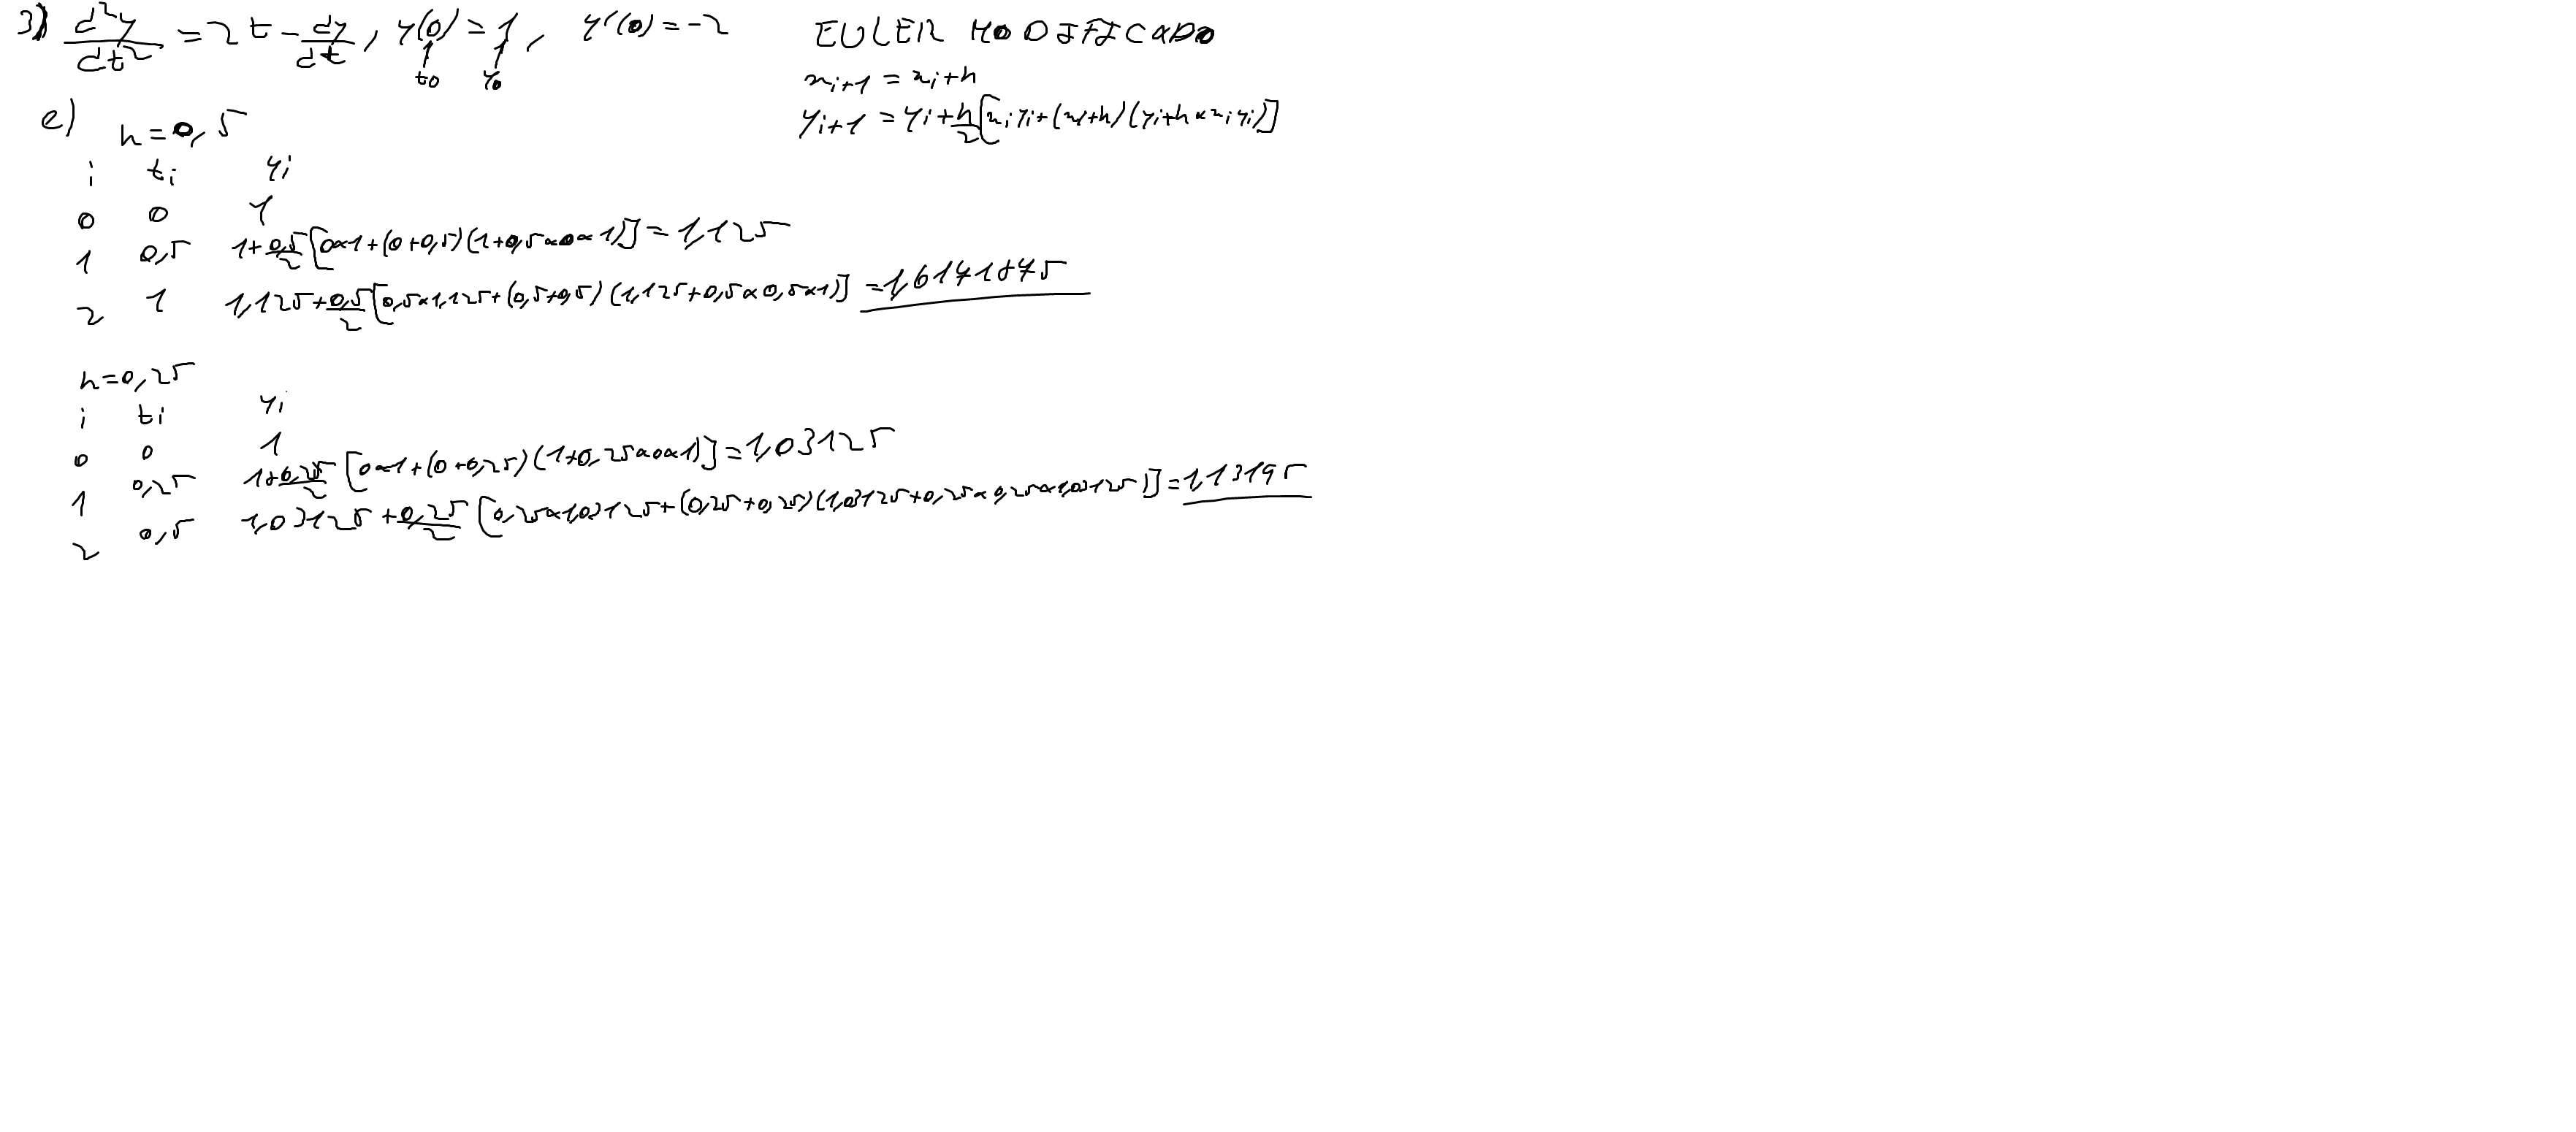 3) d²y/dt² = 2t - dy/dt, y(0) = 1, y'(0) = -2
t0 y0
EULER MODIFICADO
xi+1 = xi+h
yi+1 = yi+h/2[xi yi+(xi+h)(yi+h×xi yi)]
e) h=0,5
i ti yi
0 0 1
1 0,5 1+0,5/2[0×1+(0+0,5)(1+0,5×0×1)]=1,125
2 1 1,125+0,5/2[0,5×1,125+(0,5+0,5)(1,125+0,5×0,5×1)]=1,6171875
h=0,25
i ti yi
0 0 1
1 0,25 1+0,25/2[0×1+(0+0,25)(1+0,25×0×1)]=1,03125
2 0,5 1,03125+0,25/2[0,25×1,03125+(0,25+0,25)(1,03125+0,25×0,25×1,03125)]=1,13195